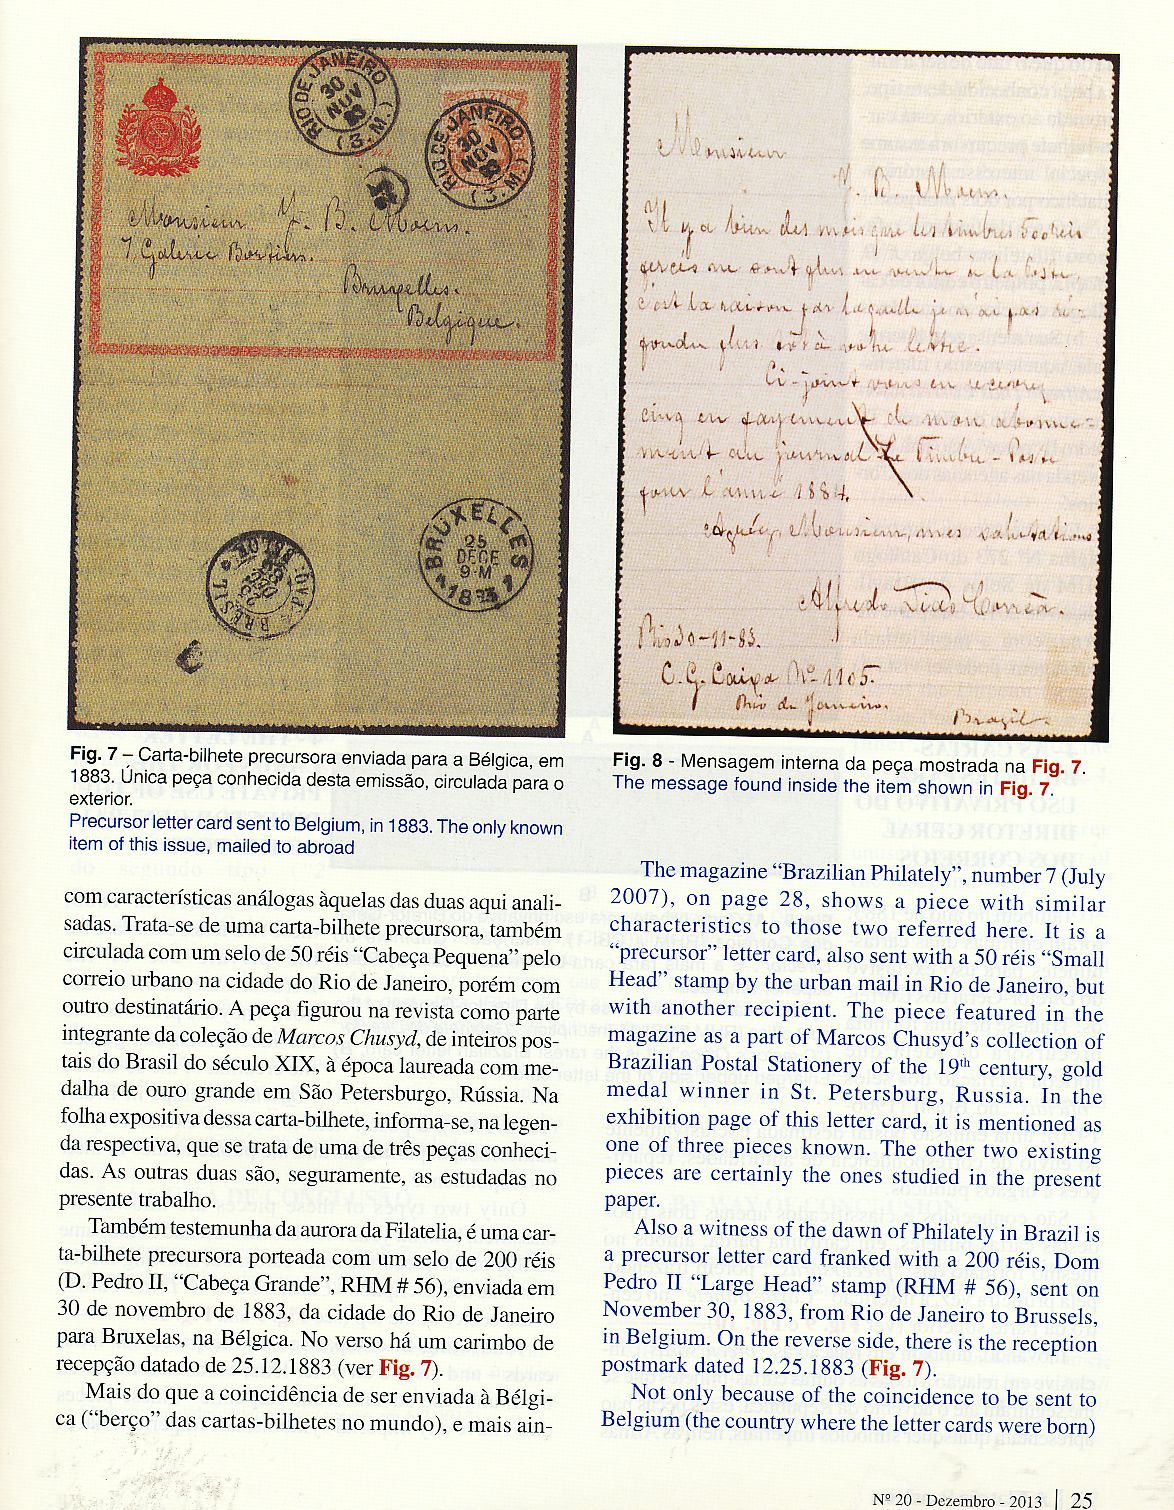 RIO DE JANEIRO
30
NOV
83
(3. M.)
RIO DE JANEIRO
30
NOV
83
(3. M.)
Monsieur J. B. Moens.
7 Galerie Bortier.
Bruxelles.
Belgique.
BRUXELLES
25
DECE
9-M
1883
Monsieur
J. B. Moens.
Il y a bien des mois que les timbres 500 reis
percés ne sont plus en vente à la Poste,
c'est la raison par laquelle je n'ai pas ré-
pondu plus tôt à votre lettre.
Ci-joint vous en recevez
cinq en payement de mon abonne-
ment au journal Le Timbre-Poste
pour l'anné 1884.
Agréez, Monsieur, mes salutations
Alfredo Corrêa.
Rio 30-11-83.
C. G. Caixa Nº 1105.
Rio de Janeiro.
Brazil.
Fig. 7 – Carta-bilhete precursora enviada para a Bélgica, em
1883. Única peça conhecida desta emissão, circulada para o
exterior.
Precursor letter card sent to Belgium, in 1883. The only known
item of this issue, mailed to abroad
Fig. 8 - Mensagem interna da peça mostrada na Fig. 7.
The message found inside the item shown in Fig. 7.
com características análogas àquelas das duas aqui anali-
sadas. Trata-se de uma carta-bilhete precursora, também
circulada com um selo de 50 réis “Cabeça Pequena” pelo
correio urbano na cidade do Rio de Janeiro, porém com
outro destinatário. A peça figurou na revista como parte
integrante da coleção de Marcos Chusyd, de inteiros pos-
tais do Brasil do século XIX, à época laureada com me-
dalha de ouro grande em São Petersburgo, Rússia. Na
folha expositiva dessa carta-bilhete, informa-se, na legen-
da respectiva, que se trata de uma de três peças conheci-
das. As outras duas são, seguramente, as estudadas no
presente trabalho.
Também testemunha da aurora da Filatelia, é uma car-
ta-bilhete precursora porteada com um selo de 200 réis
(D. Pedro II, “Cabeça Grande”, RHM # 56), enviada em
30 de novembro de 1883, da cidade do Rio de Janeiro
para Bruxelas, na Bélgica. No verso há um carimbo de
recepção datado de 25.12.1883 (ver Fig. 7).
Mais do que a coincidência de ser enviada à Bélgi-
ca (“berço” das cartas-bilhetes no mundo), e mais ain-
The magazine “Brazilian Philately”, number 7 (July
2007), on page 28, shows a piece with similar
characteristics to those two referred here. It is a
“precursor” letter card, also sent with a 50 réis “Small
Head” stamp by the urban mail in Rio de Janeiro, but
with another recipient. The piece featured in the
magazine as a part of Marcos Chusyd’s collection of
Brazilian Postal Stationery of the 19th century, gold
medal winner in St. Petersburg, Russia. In the
exhibition page of this letter card, it is mentioned as
one of three pieces known. The other two existing
pieces are certainly the ones studied in the present
paper.
Also a witness of the dawn of Philately in Brazil is
a precursor letter card franked with a 200 réis, Dom
Pedro II “Large Head” stamp (RHM # 56), sent on
November 30, 1883, from Rio de Janeiro to Brussels,
in Belgium. On the reverse side, there is the reception
postmark dated 12.25.1883 (Fig. 7).
Not only because of the coincidence to be sent to
Belgium (the country where the letter cards were born)
Nº 20 - Dezembro - 2013 | 25